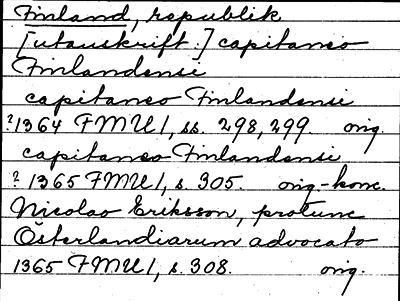 Finland, republik
[utanskrift:] capitaneo
Finlandensi
capitaneo Finlandensi
?1364 FMU 1, ss. 298, 299. orig.
capitaneo Finlandensi
? 1365 FMU 1, s. 305. orig.-konc.
Nicolao Eriksson, protunc
Österlandiarum advocato
1365 FMU 1, s. 308. orig.